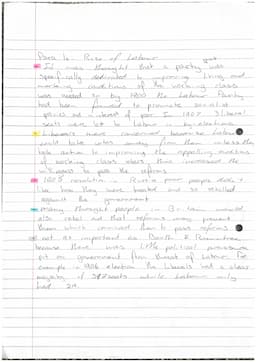 Para 4: Rise of Labour
It was thought that a party was
specifically dedicated to improving living and
working conditions of the working class
was needed so by 1900 the Labour Party
had been founded to promote socialist
policies and interest of poor. In 1907 3 liberal
seats were lost to Labour in by-elections
Liberals were concerned because Labour
would take votes away from them unless they
took action to improving the appalling conditions
of working class
willingness to pass the reforms
1905 revolution - Russia poor people didn't
like how they were treated and so rebelled
against the government
Many thought people in Britain would
also rebel and that reforms may prevent
them which convinced them to pass reforms.
not as important as Booth & Rowntree
because there was little political pressure
put on government from threat of Labour. For
example in 1906 election the Liberals had a clear
majority of 397 seats while Labour only
had 29.